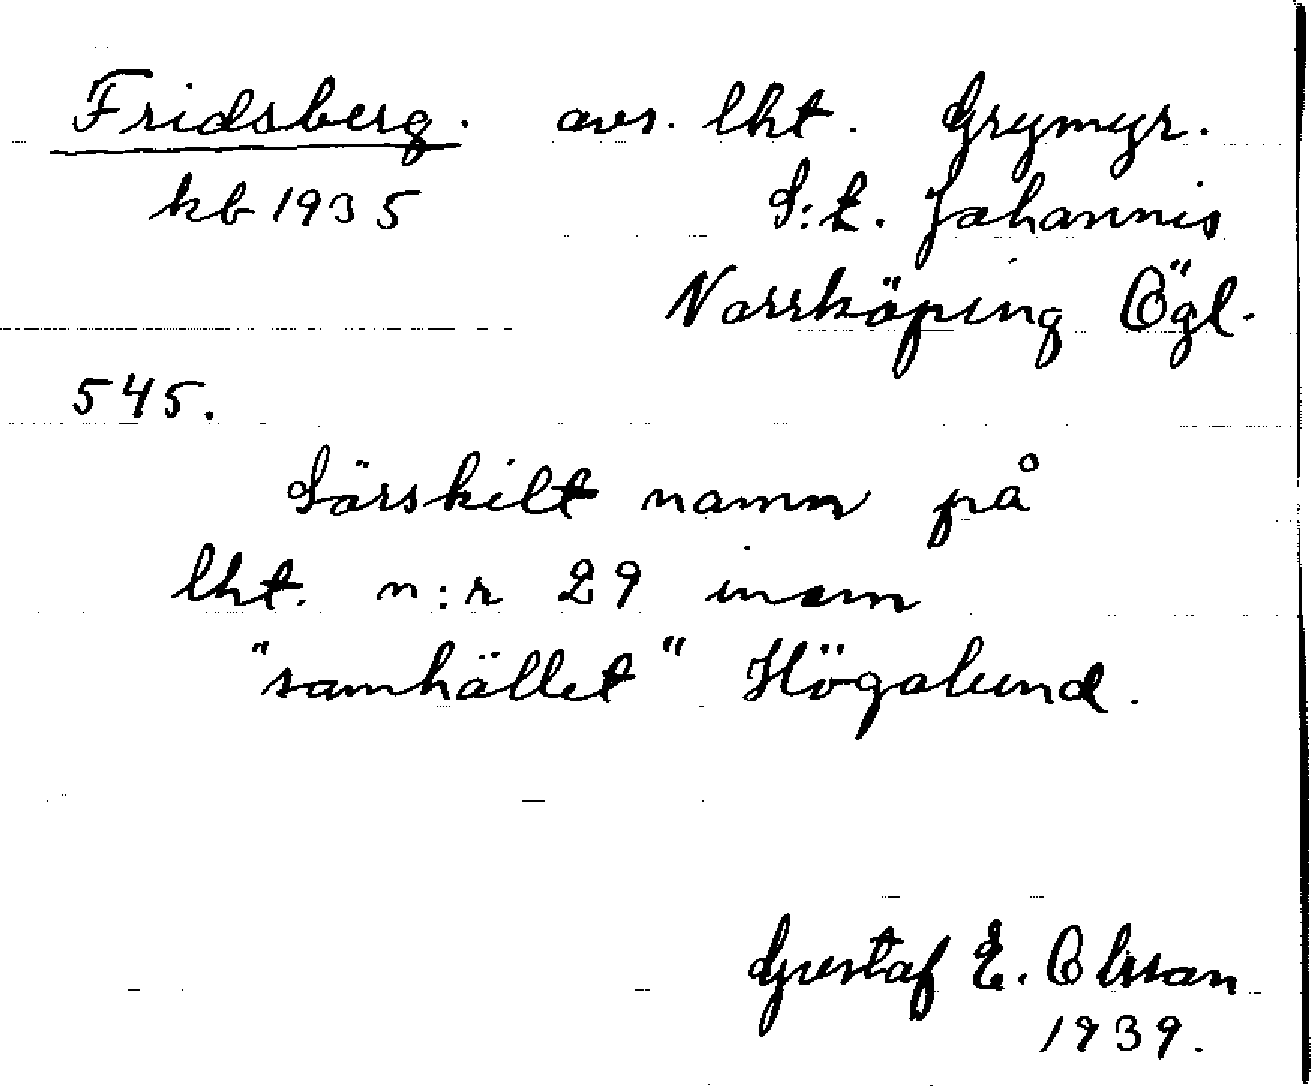 Fridsberg. avs. lht. Grymyr.
kb 1935 S:t. Johannis
Norrköping Ögl.
545.
Särskilt namn på
lht. n:r 29 inom
"samhället" Högalund.
Gustaf E. Olsson
1939.